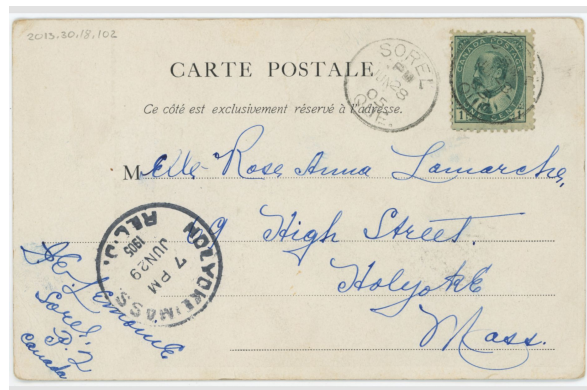 2013.30.18.102
CARTE POSTALE
Ce côté est exclusivement réservé à l'adresse.
SOREL
PM
JUN 28
05
QUE.
CANADA POSTAGE
1
Melle Rose Anna Lamarche,
9 High Street.
Holyoke
Mass.
HOLYOKE MASS.
REC'D.
7 PM
JUN 29
1905
Lemoine
Sorel,
P. Q
Canada